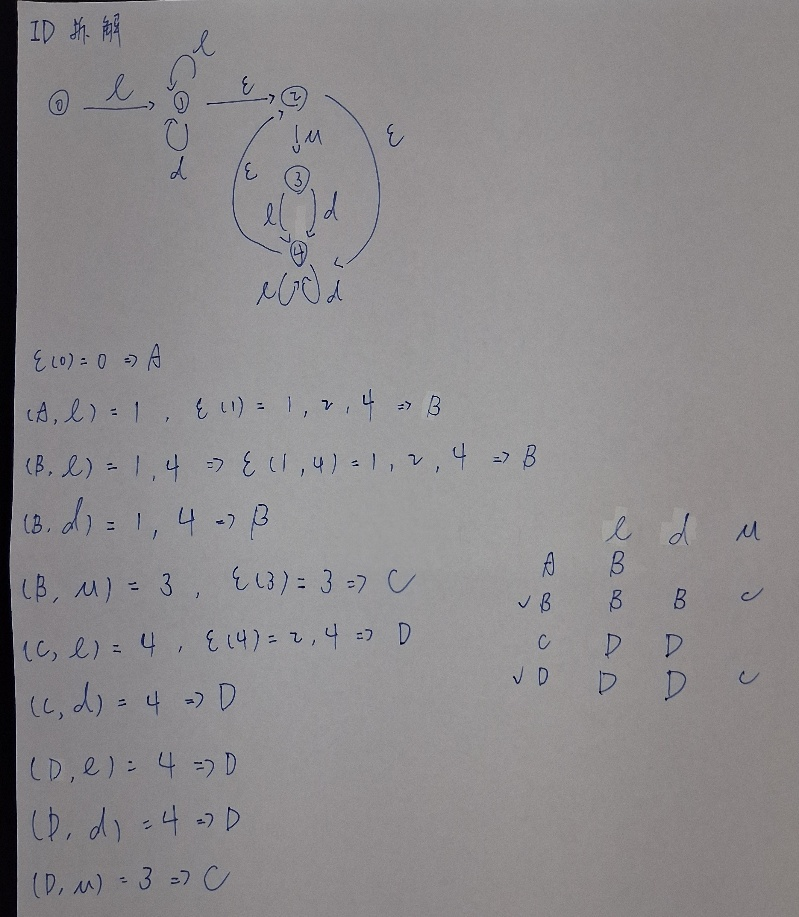 ID 拆解
l
⓪ l ① ε ②
d
μ
ε
ε
③
l d
④
l d
ε(0)=0 => A
(A, l) = 1 , ε(1) = 1, 2, 4 => B
(B, l) = 1, 4 => ε(1, 4) = 1, 2, 4 => B
(B, d) = 1, 4 => B
(B, μ) = 3 , ε(3) = 3 => C
(C, l) = 4 , ε(4) = 2, 4 => D
(C, d) = 4 => D
(D, l) = 4 => D
(D, d) = 4 => D
(D, μ) = 3 => C
l d μ
A B
✓ B B B C
C D D
✓ D D D C